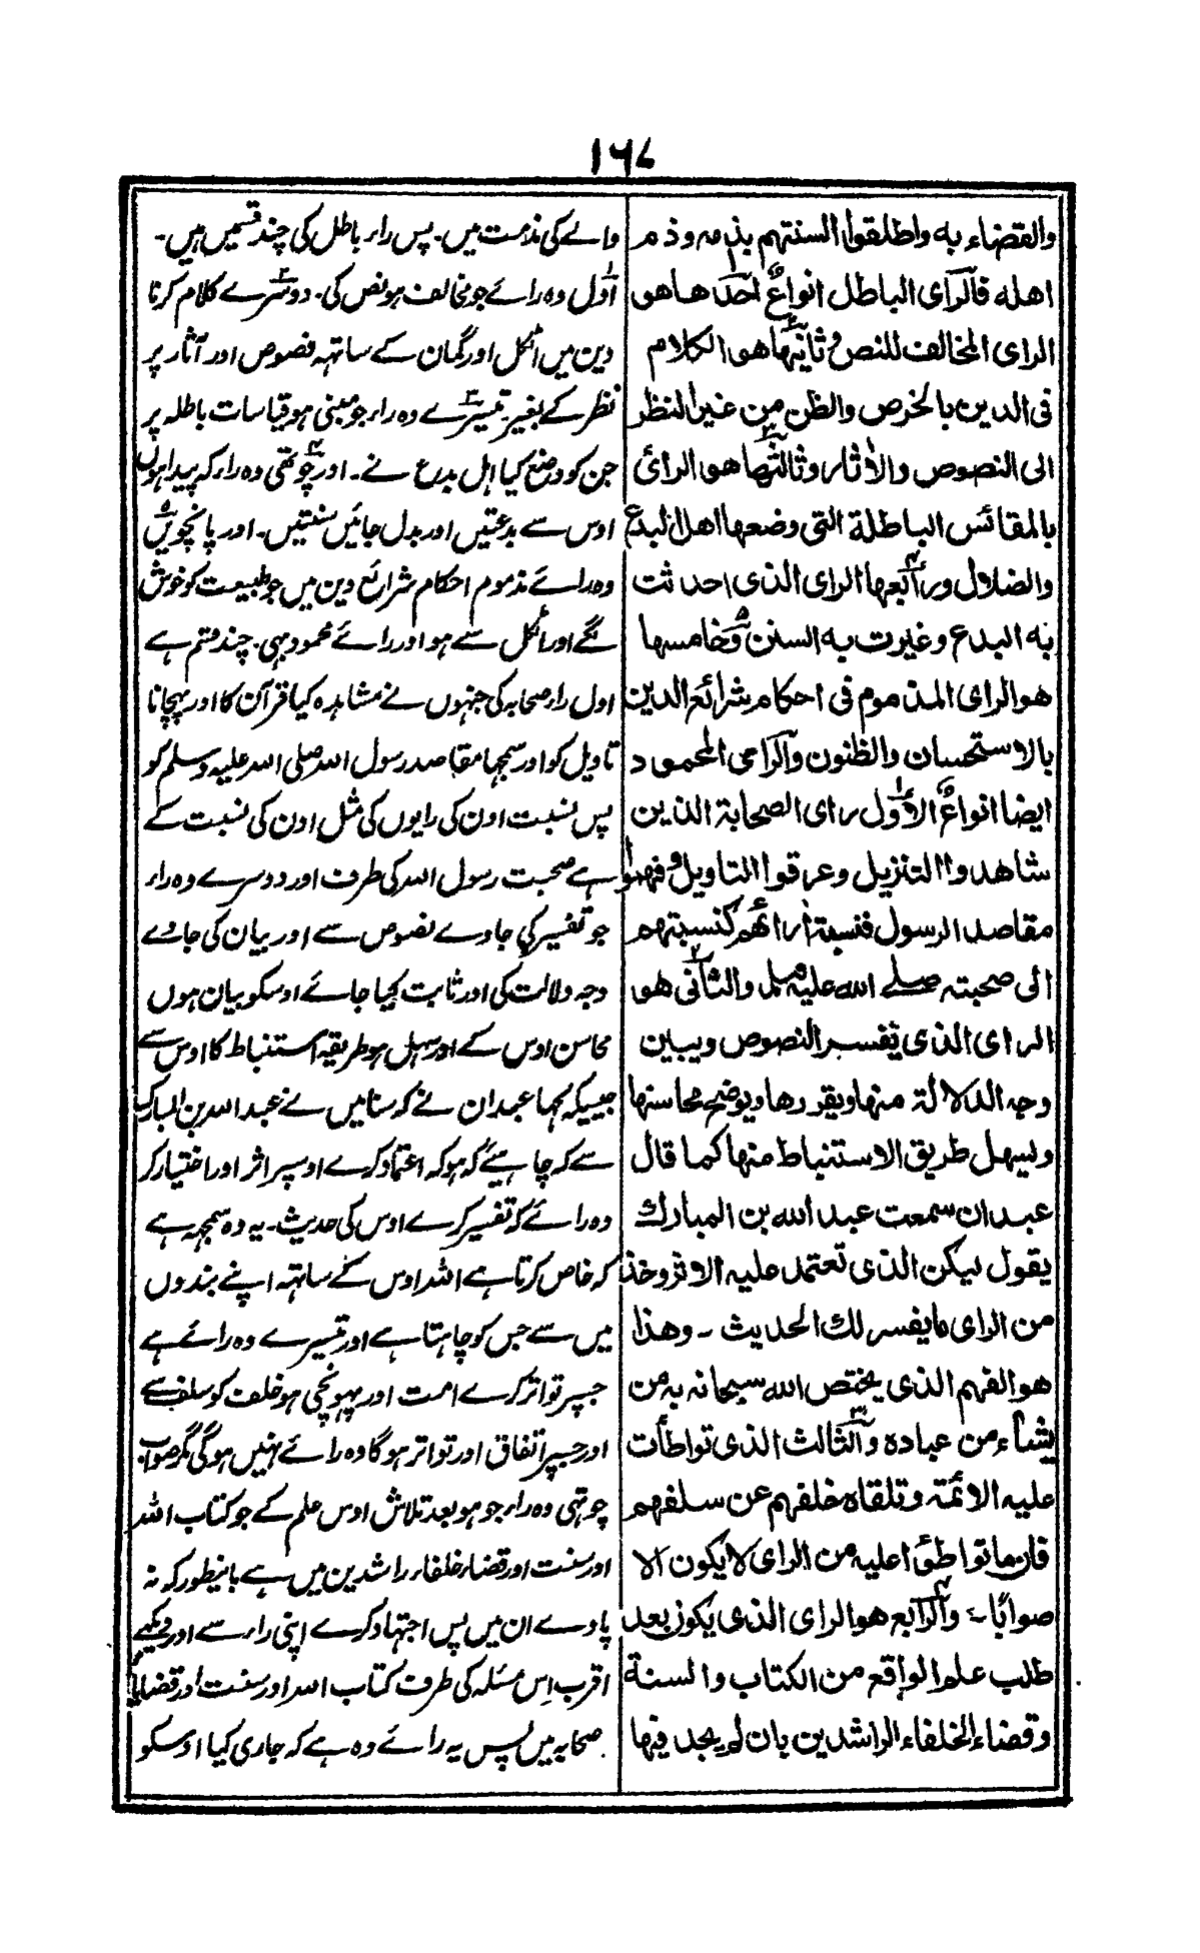 ۱۶۷
والقضاء به واطلقوا السنتهم بذمه وذم
اهله فالرای الباطل انواعٌ احدها هو
الرای المخالف للنص وثانیها هو الکلام
فی الدین بالخرص والظن من غیر النظر
الی النصوص والاثار وثالثها هو الرائ
بالمقائس الباطلة التی وضعها اهل البدع
والضلال ورابعها الرای الذی احدثت
به البدع وغیرت به السنن وخامسها
هو الرای المذموم فی احکام شرائع الدین
بالاستحسان والظنون والرای المحمود
ایضا انواعٌ الاول رای الصحابة الذین
شاهدوا التنزیل وعرفوا التاویل وفهموا
مقاصد الرسول فنسبة ارائهم کنسبتهم
الی صحبته صلے الله علیه وسلم والثانی هو
الرای الذی یفسر النصوص ویبین
وجه الدلالة منها ویقررها ویوضح محاسنها
ویسهل طریق الاستنباط منها کما قال
عبدان سمعت عبد الله بن المبارك
یقول لیکن الذی تعتمد علیه الاثر وخذ
من الرای ما یفسر لك الحدیث ۔ وهذا
هو الفهم الذی یختص الله سبحانه به من
یشاء من عباده والثالث الذی تواطأت
علیه الائمة وتلقاه خلفهم عن سلفهم
فان ما تواطئ اعلیه من الرای لا یکون الا
صوابًا ۔ والرابع هو الرای الذی یکون بعد
طلب علم الواقع من الکتاب والسنة
وقضاء الخلفاء الراشدین بان لم یجد فیها
والے کی مذمت میں۔ پس راے باطل کی چند قسمیں ہیں۔
اول وہ رائے جو مخالف ہو نص کی۔ دوسرے کلام کرنا
دین میں اٹکل اور گمان کے ساتہہ نصوص اور آثار پر
نظر کے بغیر تیسرے وہ راے جو مبنی ہو قیاسات باطلہ پر
جن کو وضع کیا اہل بدع نے۔ اور چوتھی وہ راے کہ پیدا ہوں
اوس سے بدعتیں اور بدل جائیں سنتیں۔ اور پانچویں
وہ رائے مذموم احکام شرائع دین میں جو طبیعت کو خوش
لگے اور اٹکل سے ہو اور رائے محمود بہی۔ چند قسم ہے
اول راے صحابہ کی جنہوں نے مشاہدہ کیا قرآن کا اور پہچانا
تاویل کو اور سمجہا مقاصد رسول اللہ صلی اللہ علیہ وسلم کو
پس نسبت اون کی رایوں کی مثل اون کی نسبت کے
ہے صحبت رسول اللہ کی طرف اور دوسرے وہ راے
جو تفسیر کی جاوے نصوص سے اور بیان کی جائے
وجہ دلالت کی اور ثابت کیا جائے اوسکو بیان ہوں
محاسن اوس کے اور سہل ہو طریقہ استنباط کا اوس سے
جیسیکہ کہا عبدان نے کہ سنا میں نے عبد اللہ بن المبارک
سے کہ چاہئیے کہ ہو کہ اعتماد کرے اوسپر اثر اور اختیار کر
وہ رائے کہ تفسیر کرے اوس کی حدیث۔ یہ وہ سمجہہ ہے
کہ خاص کرتا ہے اللہ اوس کے ساتہہ اپنے بندوں
میں سے جس کو چاہتا ہے اور تیسرے وہ رائے ہے
جسپر تواتر کرے امت اور پہونچی ہو خلف کو سلف سے
اور جسپر اتفاق اور تواتر ہوگا وہ رائے نہیں ہوگی مگر صواب
چوتہی وہ راے جو ہو بعد تلاش اوس علم کے جو کتاب اللہ
اور سنت اور قضاء خلفاء راشدین میں ہے باینطور کہ نہ
پاوے ان میں پس اجتہاد کرے اپنی راے سے اور دیکہے
اقرب اس مسئلہ کی طرف کتاب اللہ اور سنت اور قضایا
صحابہ میں پس یہ رائے وہ ہے کہ جاری کیا اوسکو